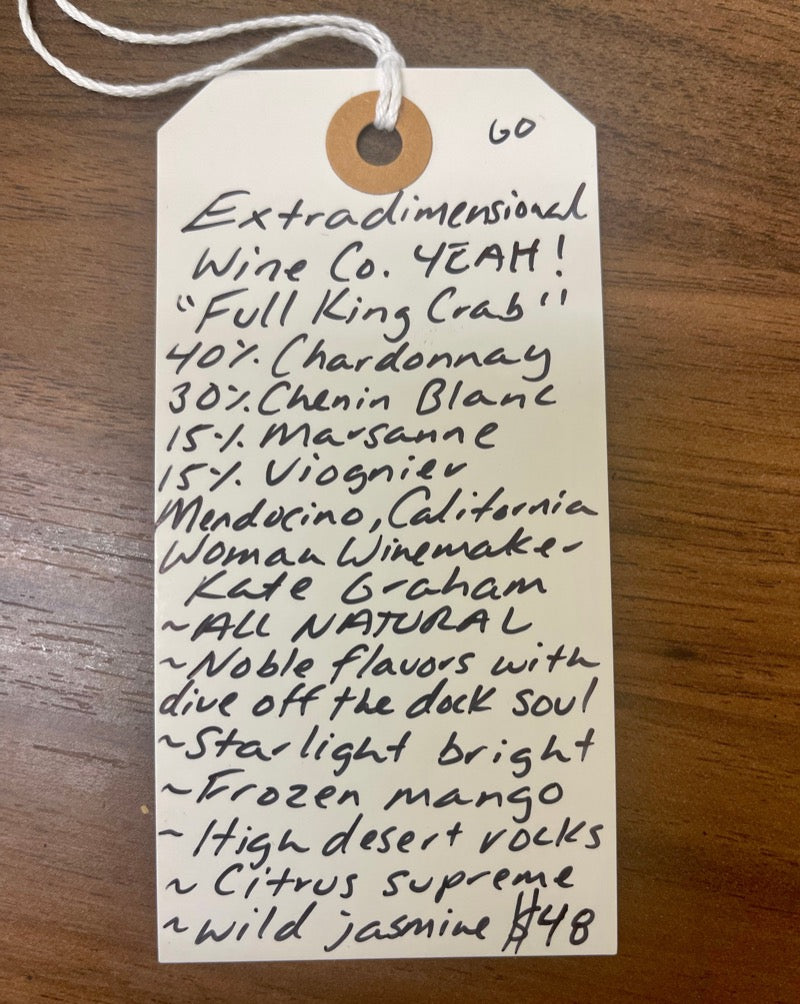 GO
Extradimensional
Wine Co. YEAH!
"Full King Crab"
40% Chardonnay
30% Chenin Blanc
15% Marsanne
15% Viognier
Mendocino, California
Woman Winemaker
Kate Graham
~ALL NATURAL
~Noble flavors with
dive off the dock soul
~Starlight bright
~Frozen mango
~High desert rocks
~Citrus supreme
~wild jasmine $48